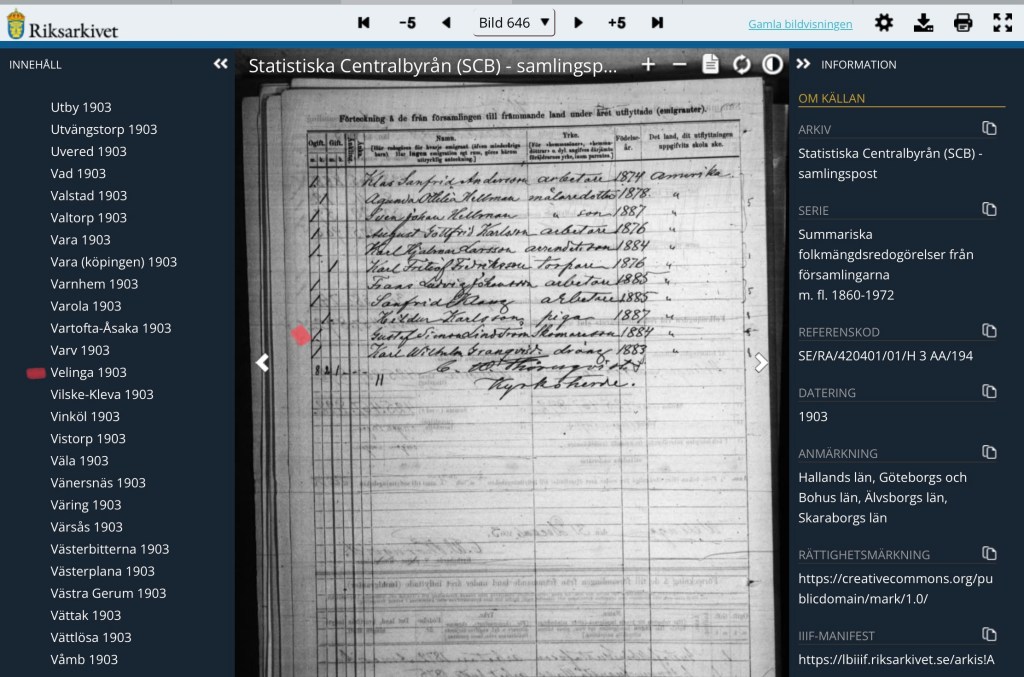 Riksarkivet
-5
Bild 646 ▼
+5
Gamla bildvisningen
INNEHÅLL
Utby 1903
Utvängstorp 1903
Uvered 1903
Vad 1903
Valstad 1903
Valtorp 1903
Vara 1903
Vara (köpingen) 1903
Varnhem 1903
Varola 1903
Vartofta-Åsaka 1903
Varv 1903
Velinga 1903
Vilske-Kleva 1903
Vinköl 1903
Vistorp 1903
Väla 1903
Vänersnäs 1903
Väring 1903
Värsås 1903
Västerbitterna 1903
Västerplana 1903
Västra Gerum 1903
Vättak 1903
Vättlösa 1903
Våmb 1903
Statistiska Centralbyrån (SCB) - samlingsp...
Förteckning å de från församlingen till främmande land under året utflyttade (emigranter).
Ogift. Gift. Namn. Yrke. Födelse-år. Det land, dit utflyttningen uppgifvits skola ske.
Klas Sanfrid Andersson arbetare 1874 Amerika
Ottilia Hellman målaredotter 1878 "
Sven Johan Hellman " son 1887 "
August Gottfrid Karlsson arbetare 1876 "
Karl Hjalmar Larsson arrendatorson 1884 "
Karl Fritiof Fredriksson torpare 1876 "
Frans Ludvig Johansson arbetare 1885 "
Sanfrid Klang arbetare 1885 "
Hilda Karlsson piga 1887 "
Gustaf Simon Lindström 1884 "
Karl Wilhelm Granqvist dräng 1883 "
Kyrkoherde.
INFORMATION
OM KÄLLAN
ARKIV
Statistiska Centralbyrån (SCB) -
samlingspost
SERIE
Summariska
folkmängdsredogörelser från
församlingarna
m. fl. 1860-1972
REFERENSKOD
SE/RA/420401/01/H 3 AA/194
DATERING
1903
ANMÄRKNING
Hallands län, Göteborgs och
Bohus län, Älvsborgs län,
Skaraborgs län
RÄTTIGHETSMÄRKNING
https://creativecommons.org/pu
blicdomain/mark/1.0/
IIIF-MANIFEST
https://lbiiif.riksarkivet.se/arkis!A